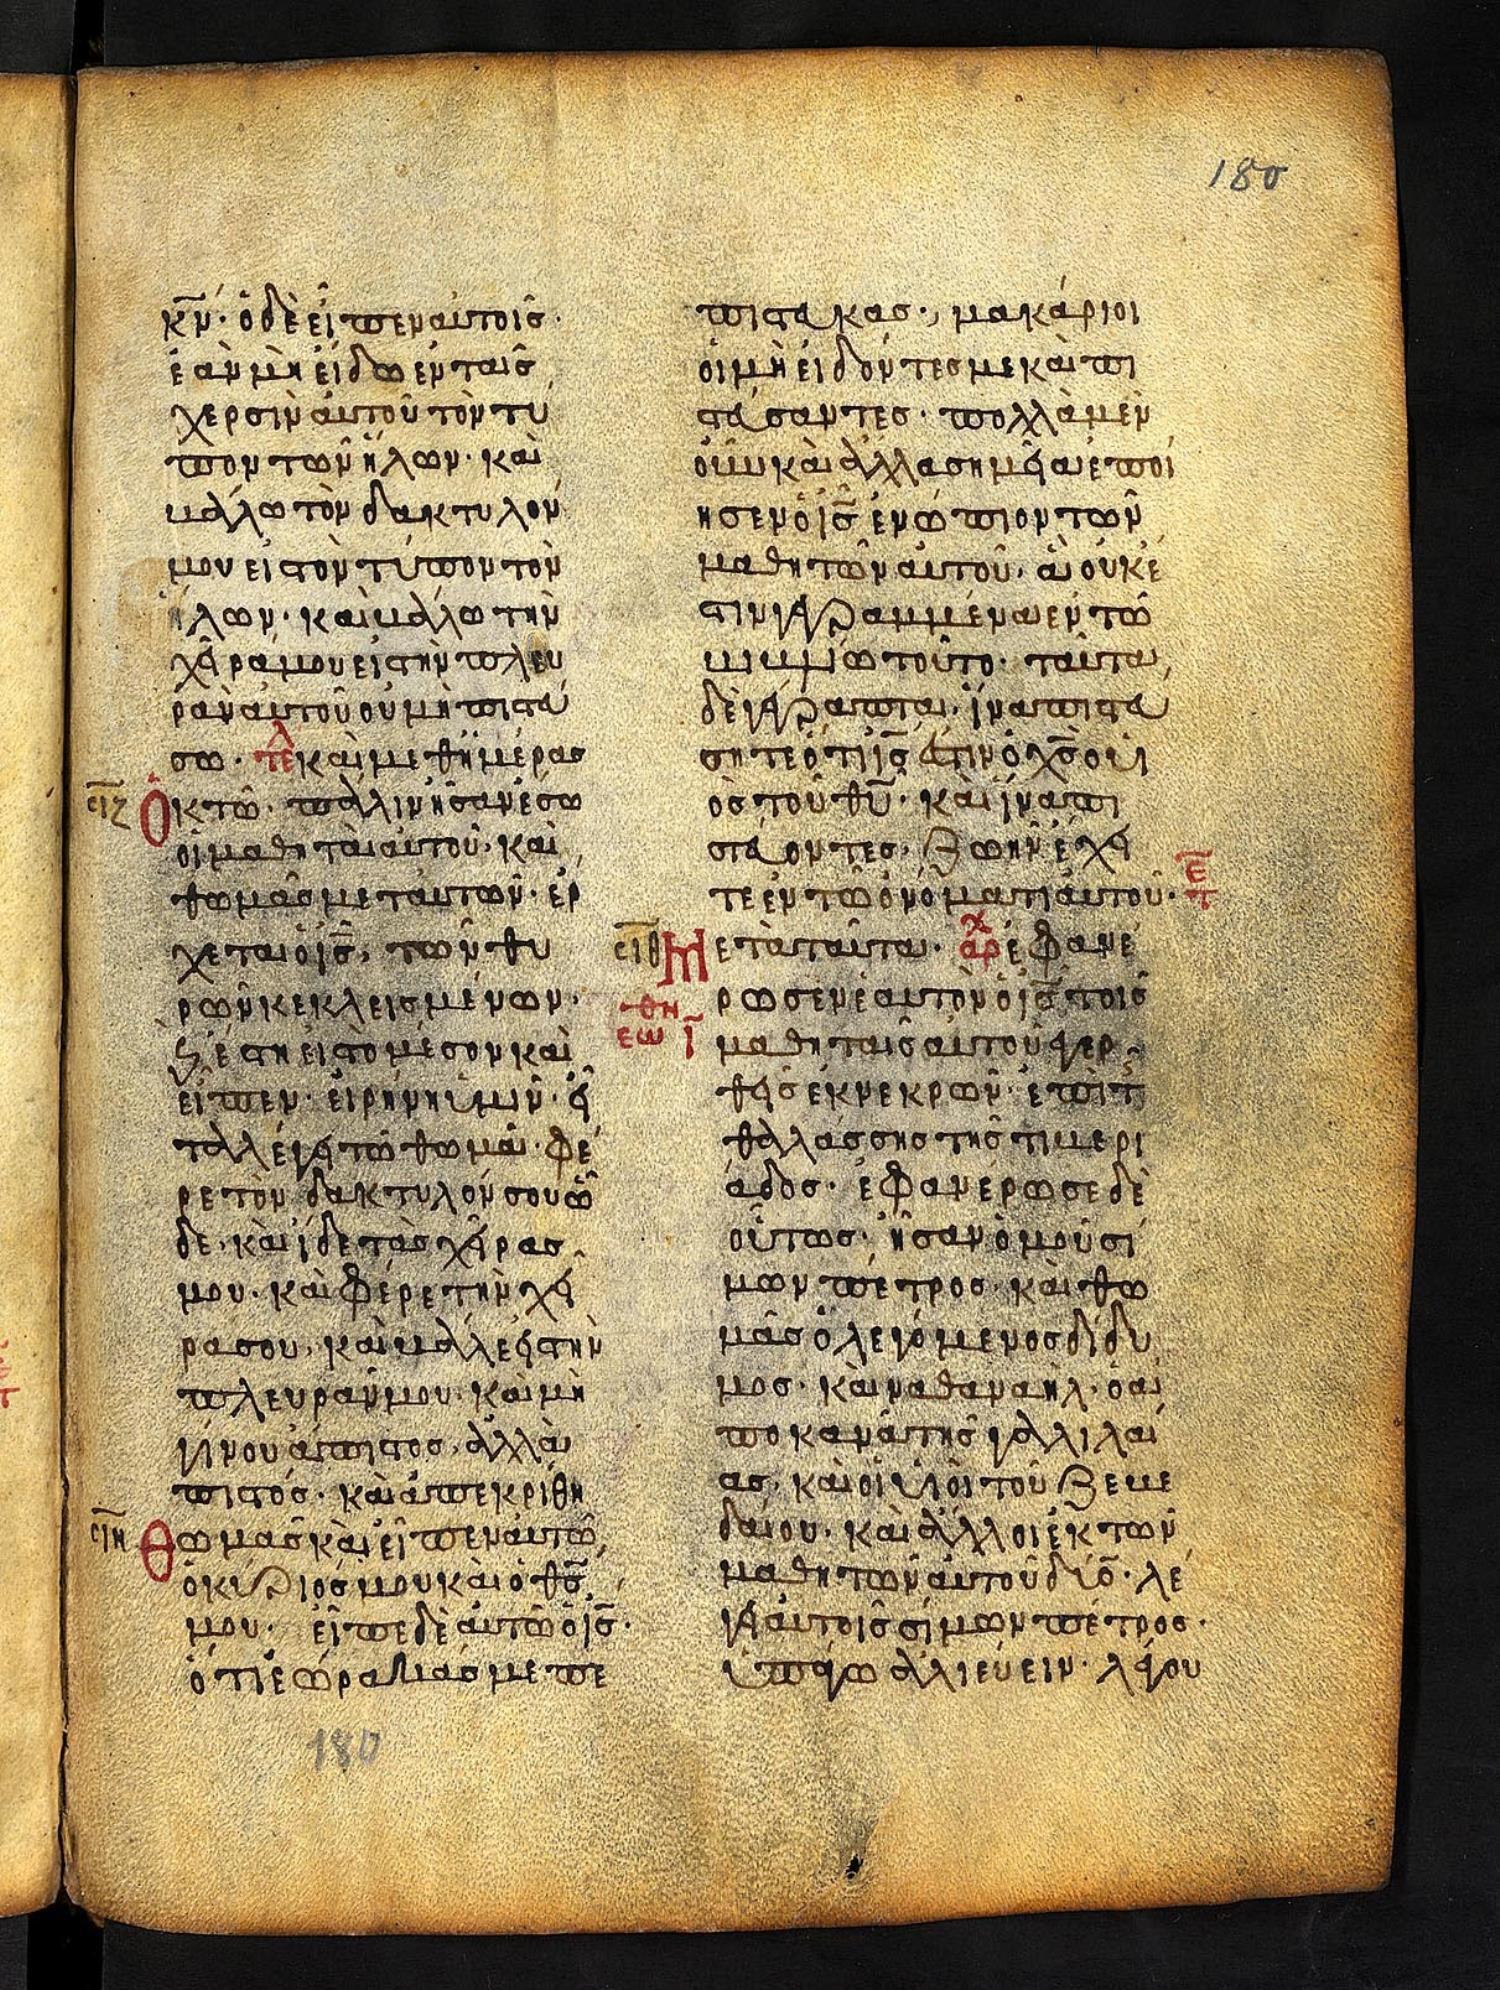 180
κ̅ν̅· ὁ δὲ εἶπεν αὐτοῖς·
ἐὰν μὴ εἴδω ἐν ταῖς
χερσὶν αὐτοῦ τὸν τύ
πον τῶν ἥλων· καὶ
βάλλω τὸν δάκτυλόν
μου εἰς τὸν τύπον τὸν
ἥλων· καὶ βάλλω τὴν
χεῖρά μου εἰς τὴν πλευ
ρὰν αὐτοῦ οὐ μὴ πιστεύ
σω· τελ καὶ μεθ ἡμέρας
σιζ ὀκτὼ· πάλιν ἦσαν ἔσω
οἱ μαθηταὶ αὐτοῦ· καὶ
θωμᾶς μετ αὐτῶν· ἔρ
χεται ὁ ι̅ς̅, τῶν θυ
ρῶν κεκλεισμένων·
ϗ ἔστη εἰς τὸ μέσον καὶ
εἶπεν· εἰρήνη ὑμῖν· εἶ
τα λέγει τῶ θωμᾶ· φέ
ρε τὸν δάκτυλόν σου ὧ
δε· καὶ ἴδε τὰς χεῖρας
μου· καὶ φέρε τὴν χεῖ
ρα σου, καὶ βάλλε εἰς τὴν
πλευράν μου· καὶ μὴ
γίνου ἄπιστος, ἀλλὰ
πιστός· καὶ ἀπεκρίθη
σιη θωμᾶς καὶ εἶπεν αὐτῶ,
ὁ κύριός μου καὶ ὁ θ̅ς̅
μου· εἶπε δὲ αὐτῶ ὁ ι̅ς̅·
ὅτι ἑώρακάς με πε
πίστευκας·, μακάριοι
οἱ μὴ εἰδόντες με καὶ πι
στεύσαντες· πολλὰ μὲν
οὖν καὶ ἄλλα σημεῖα ἐποί
ησεν ὁ ι̅ς̅ ἐνώπιον τῶν
μαθητῶν αὐτοῦ· ἃ οὐκ ἔ
στιν γεγραμμένα ἐν τῶ
βιβλίω τούτο· ταῦτα
δὲ γέγραπται· ἵνα πιστεύ
σητε ὅτι ι̅ς̅ ἐστιν ὁ χ̅ς̅ ὁ υἱ
ὸς τοῦ θ̅υ̅· καὶ ἵνα πι
στεύοντες, ζωὴν ἔχη
τε ἐν τῶ ὀνόματι αὐτοῦ· ε̅τ
σιθ Μετὰ ταῦτα· ἀρχ ἐφανέ
ρωσεν ἑαυτὸν ὁ ι̅ς̅ τοῖς
εω ι̅ μαθηταῖς αὐτοῦ ἐγερ
θεὶς ἐκ νεκρῶν· ἐπὶ τ̅
θαλάσσης τῆς τιβερι
άδος· ἐφανέρωσε δὲ
οὕτως· ἦσαν ὁμοῦ σί
μων πέτρος· καὶ θω
μᾶς ὁ λεγόμενος δίδυ
μος· καὶ ναθαναὴλ· ὁ ἀ
πὸ κανᾶ τῆς γαλιλαί
ας· καὶ οἱ υἱοὶ τοῦ ζεβε
δαίου· καὶ ἄλλοι ἐκ τῶν
μαθητῶν αὐτοῦ δύο· λέ
γει αὐτοῖς σίμων πέτρος·
ὑπάγω ἁλιεύειν· λέγου
180